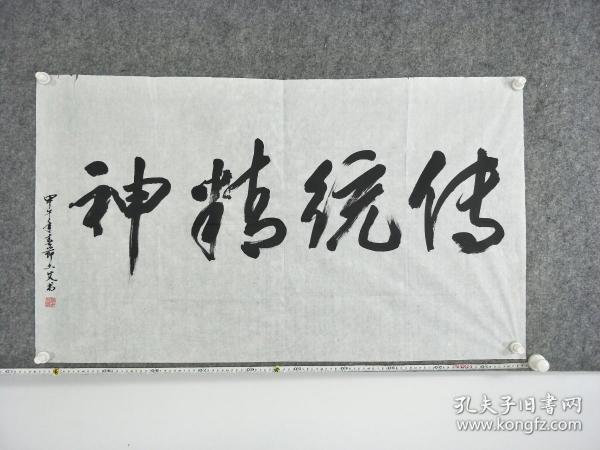 传统精神
甲午年春节
孔夫子旧書网
www.kongfz.com